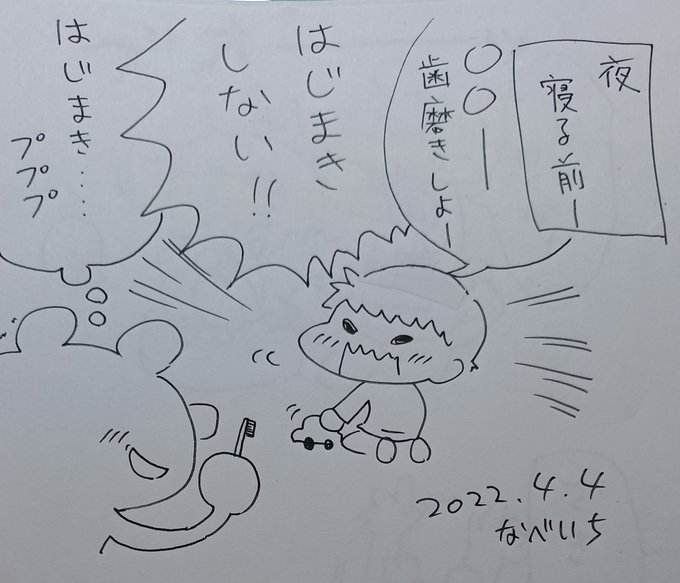 夜
寝る前ー
○○ー
歯磨きしよー
はじまき
しない!!
はじまき‥‥
ププププ
2022.4.4
なべいち